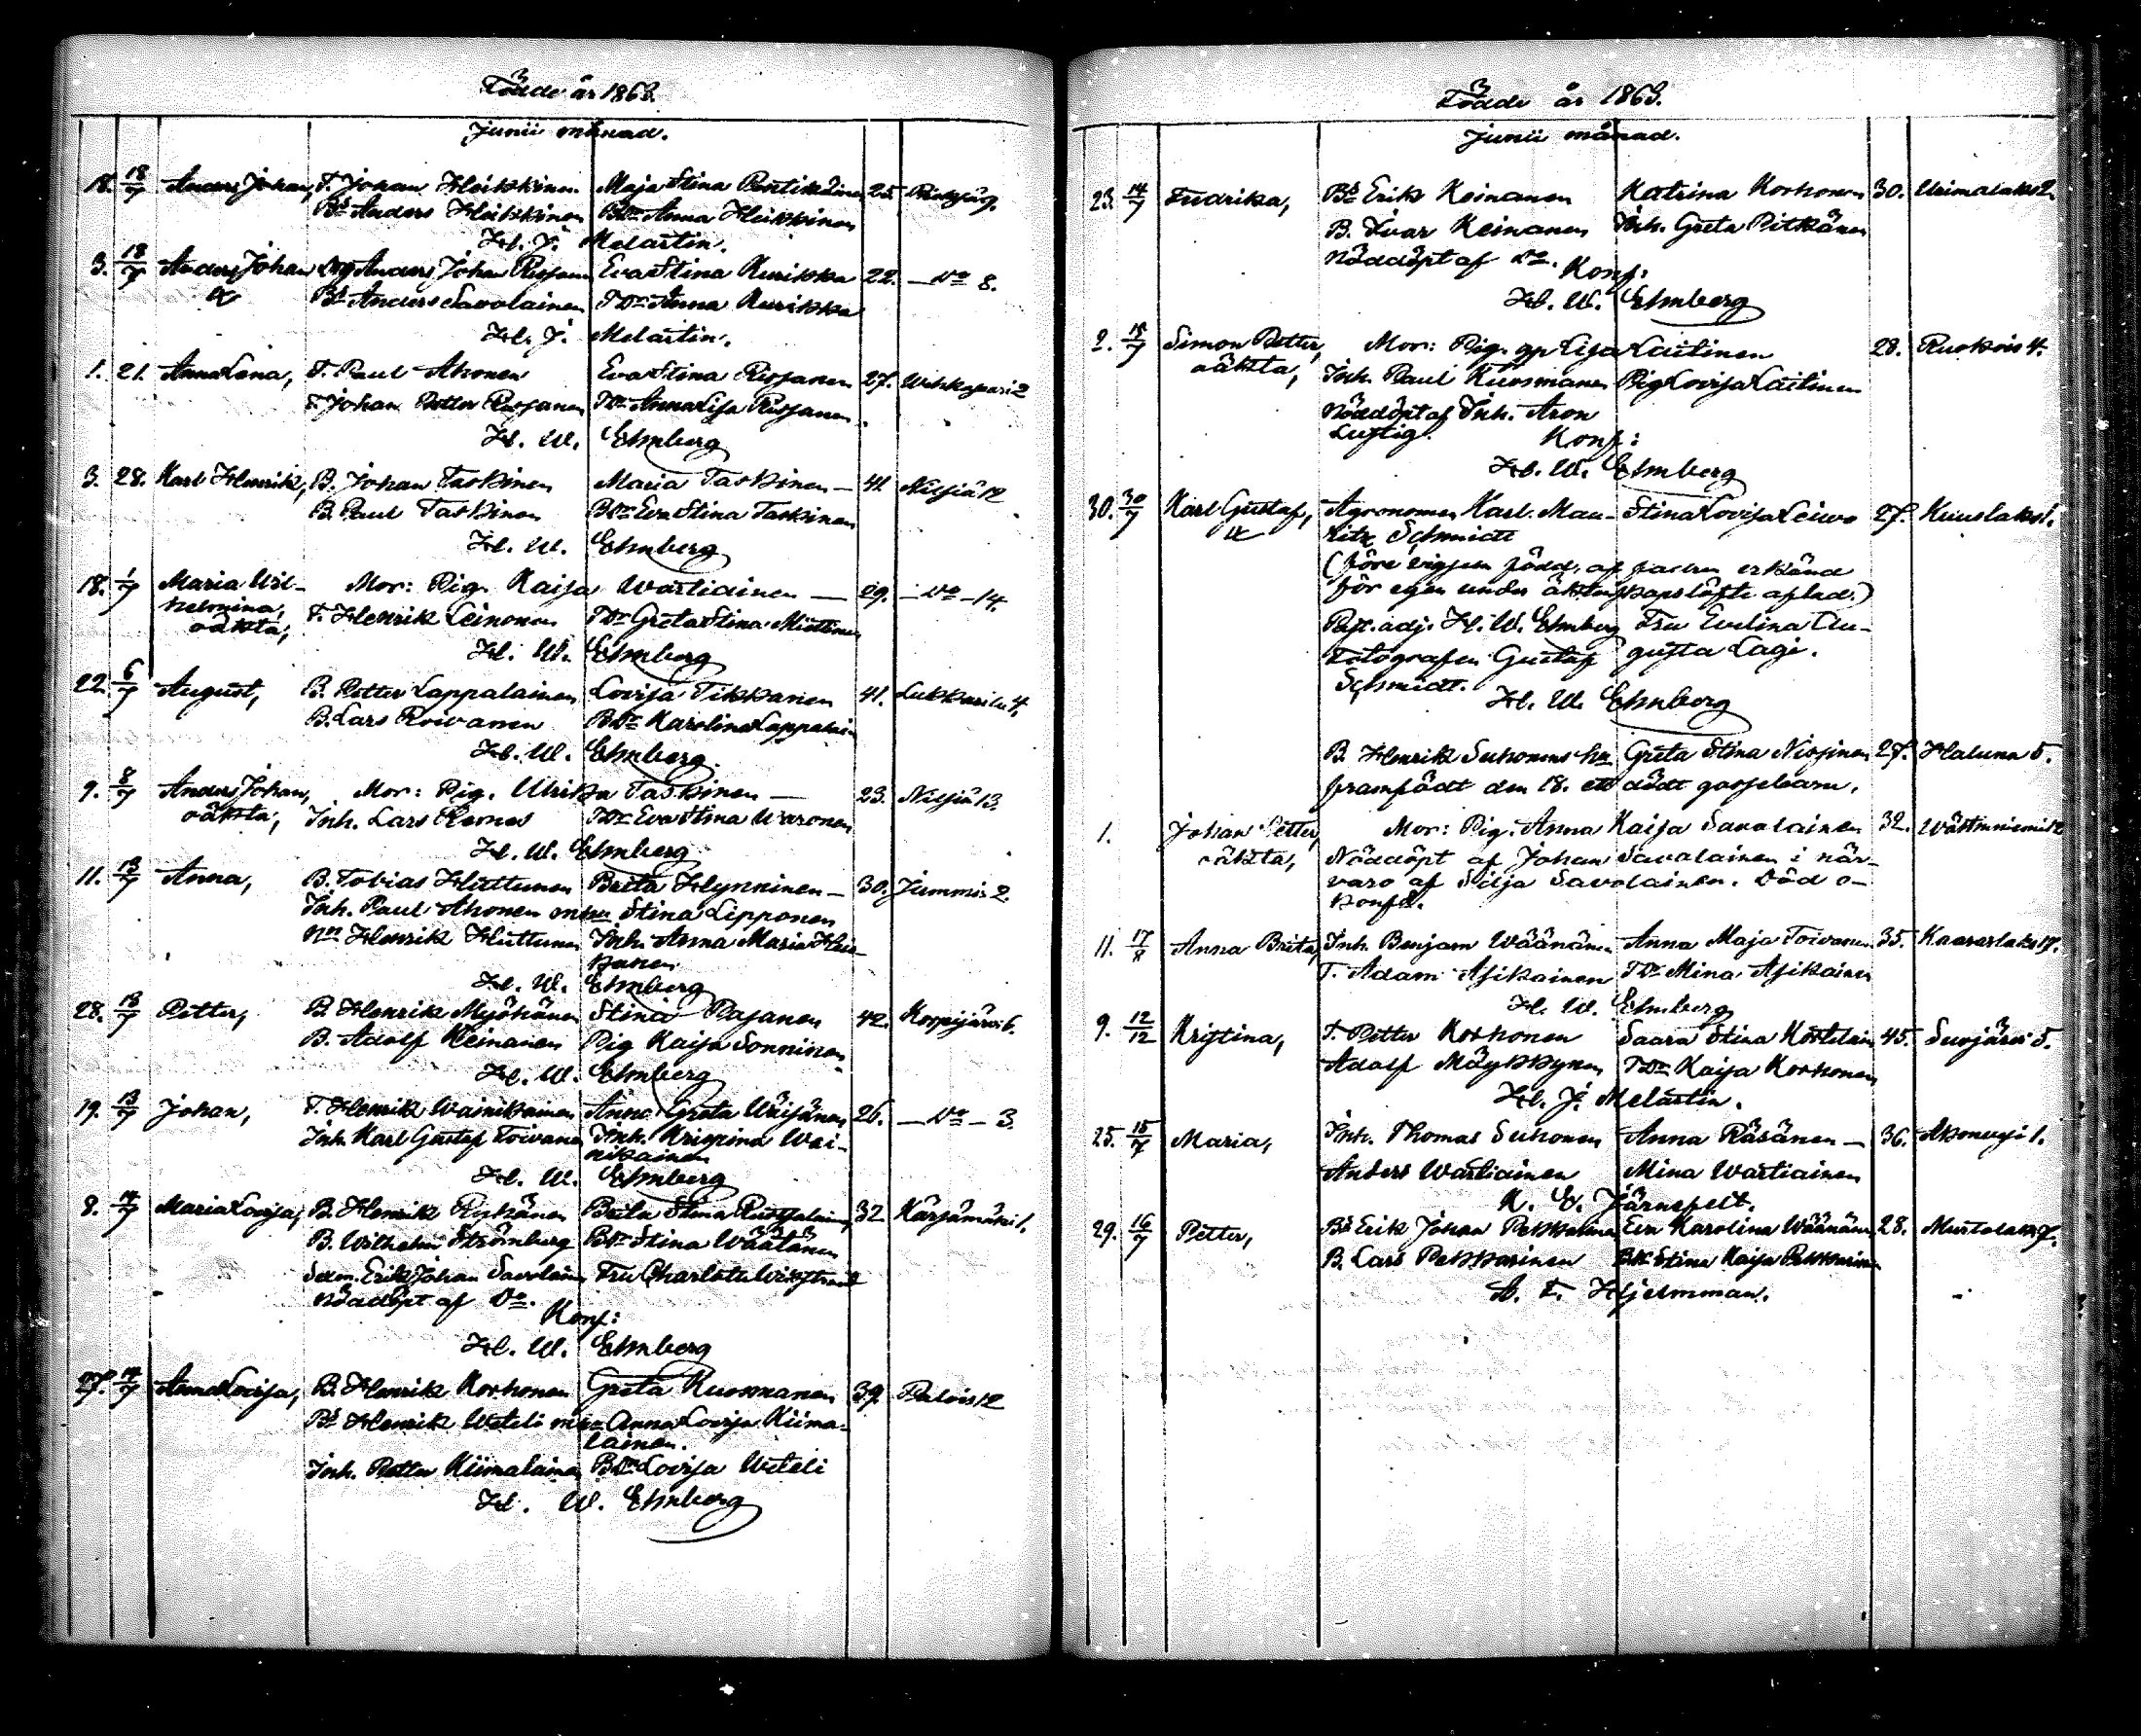 Födde år 1863.
Junii månad.
18. 18/7 Anders Johan, T. Johan Heikkinen Maja Stina 25.
Bs Anders Heikkinen BDr Anna Heikkinen
H. J. Melartin.
3. 18/7 Anders Johan Anders Johan Eva Stina Kurikka 22. — Do 8.
Bs Anders Savolainen TDr Anna Kurikka
H. J. Melartin.
1. 21. Anna Lena, T. Paul Ahonen Eva Stina Rissanen 27.
T. Johan Petter Rissanen TDr Anna Lisa Rissanen
H. W. Elmberg
3. 28. Karl Henrik, B. Johan Taskinen Maria Taskinen — 41. Nilsiä 12
B. Paul Taskinen BDr Eva Stina Taskinen
H. W. Elmberg
18. 1/7 Maria Wil- Mor: Pig. Kaisa Wartiainen — 29. — Do — 14.
helmina, T. Henrik Leinonen TDr Greta Stina Miettinen
oäkta,
H. W. Elmberg
22. 6/7 August, B. Petter Lappalainen Lovisa Tikkanen 41. Lukkarila 4.
B. Lars Roivanen BDr Karolina Lappalai-
H. W. Elmberg.
9. 8/7 Anders Johan, Mor: Pig. Ulrika Taskinen — 23. Nilsiä 13.
oäkta, Inh. Lars TDr Eva Stina
H. W. Elmberg
11. 13/7 Anna, B. Tobias Huttunen Brita Hynninen — 30.
Inh. Paul Ahonen m hu Stina Lipponen
Nn Henrik Huttunen Inh. Anna Maria
H. W. Elmberg
28. 13/7 Petter, B. Henrik Myöhänen Stina Pajanen 42. Korpijärvi 6.
B. Adolf Keinanen Pig Kaisa Sonninen
H. W. Elmberg
19. 13/7 Johan, T. Henrik Wainikainen Anna Greta Wäisänen 26. — Do — 3.
Inh. Karl Gustaf Toivanen Inh. Kristina Wai-
nikainen
H. W. Elmberg
8. 14/7 Maria Lovisa, B. Henrik Brita Stina 32. Kärsämäki 1.
B. Wilhelm Strömberg BDr Stina Wäätänen
Erik Johan Savolainen Fru Charlotta
Nöddöpt af Do.
Konf:
H. W. Elmberg
27. 14/7 Anna Lovisa, B. Henrik Korhonen Greta Kuosmanen 39. Palois 12
Bs Henrik Weteli m hu Anna Lovisa Kiima-
lainen.
Inh. Petter Kiimalainen BDr Lovisa Weteli
H. W. Elmberg
Födde år 1863.
Junii månad.
23. 14/7 Fredrika, Bs Erik Keinanen Katrina Korhonen 30.
B. Ivar Keinanen Inh. Greta Pitkänen
Nöddöpt af Do. Konf:
H. W. Elmberg
2. 15/7 Simon Petter, Mor: Pig. Lisa Laitinen 28. Ruokois 4.
oäkta, Inh. Paul Kuosmanen Pig Lovisa Laitinen
Nöddöpt af Inh. Aron
Lustig. Konf:
H. W. Elmberg
30. 30/7 Karl Gustaf, Agronomen Karl Mau- Stina Lovisa Leiwo 27. Kuuslaks 1.
ritz Schmidt
(före vigseln född, af fadren erkänd
för egen under äktenskapslöfte aflad.)
Past. adj. H. W. Elmberg Fru Evelina Au-
Fotografen Gustaf gusta Lagi.
Schmidt.
H. W. Elmberg
B. Henrik Suhonens hu Greta Stina Nissinen 27. Haluna 5.
framfödt den 18. ett dödt gossebarn.
1. Johan Petter, Mor: Pig. Anna Kaisa Savolainen 32.
oäkta, Nöddöpt af Johan Savolainen i när-
varo af Silja Savolainen. Död o-
konf.
11. 17/8 Anna Brita, Inh. Benjam Wäänänen Anna Maja Toivanen 35. Kaaraslaks 17.
T. Adam Asikainen TDr Mina Asikainen
H. W. Elmberg
9. 12/12 Kristina, T. Petter Korhonen Saara Stina 45. Suojärvi 5.
Adolf Mäykkynen TDr Kaisa Korhonen
H. J. Melartin.
25. 15/7 Maria, Inh. Thomas Suhonen Anna Räsänen — 36. Akonvesi 1.
Anders Wartiainen Mina Wartiainen
K. E. Järnefelt.
29. 16/7 Petter, Bs Erik Johan Pekkarinen Eva Karolina Wäänänen 28. Murtolaks 7.
B. Lars Pekkarinen Stina Kaisa Pekkarinen
A. F. Hjelmman.